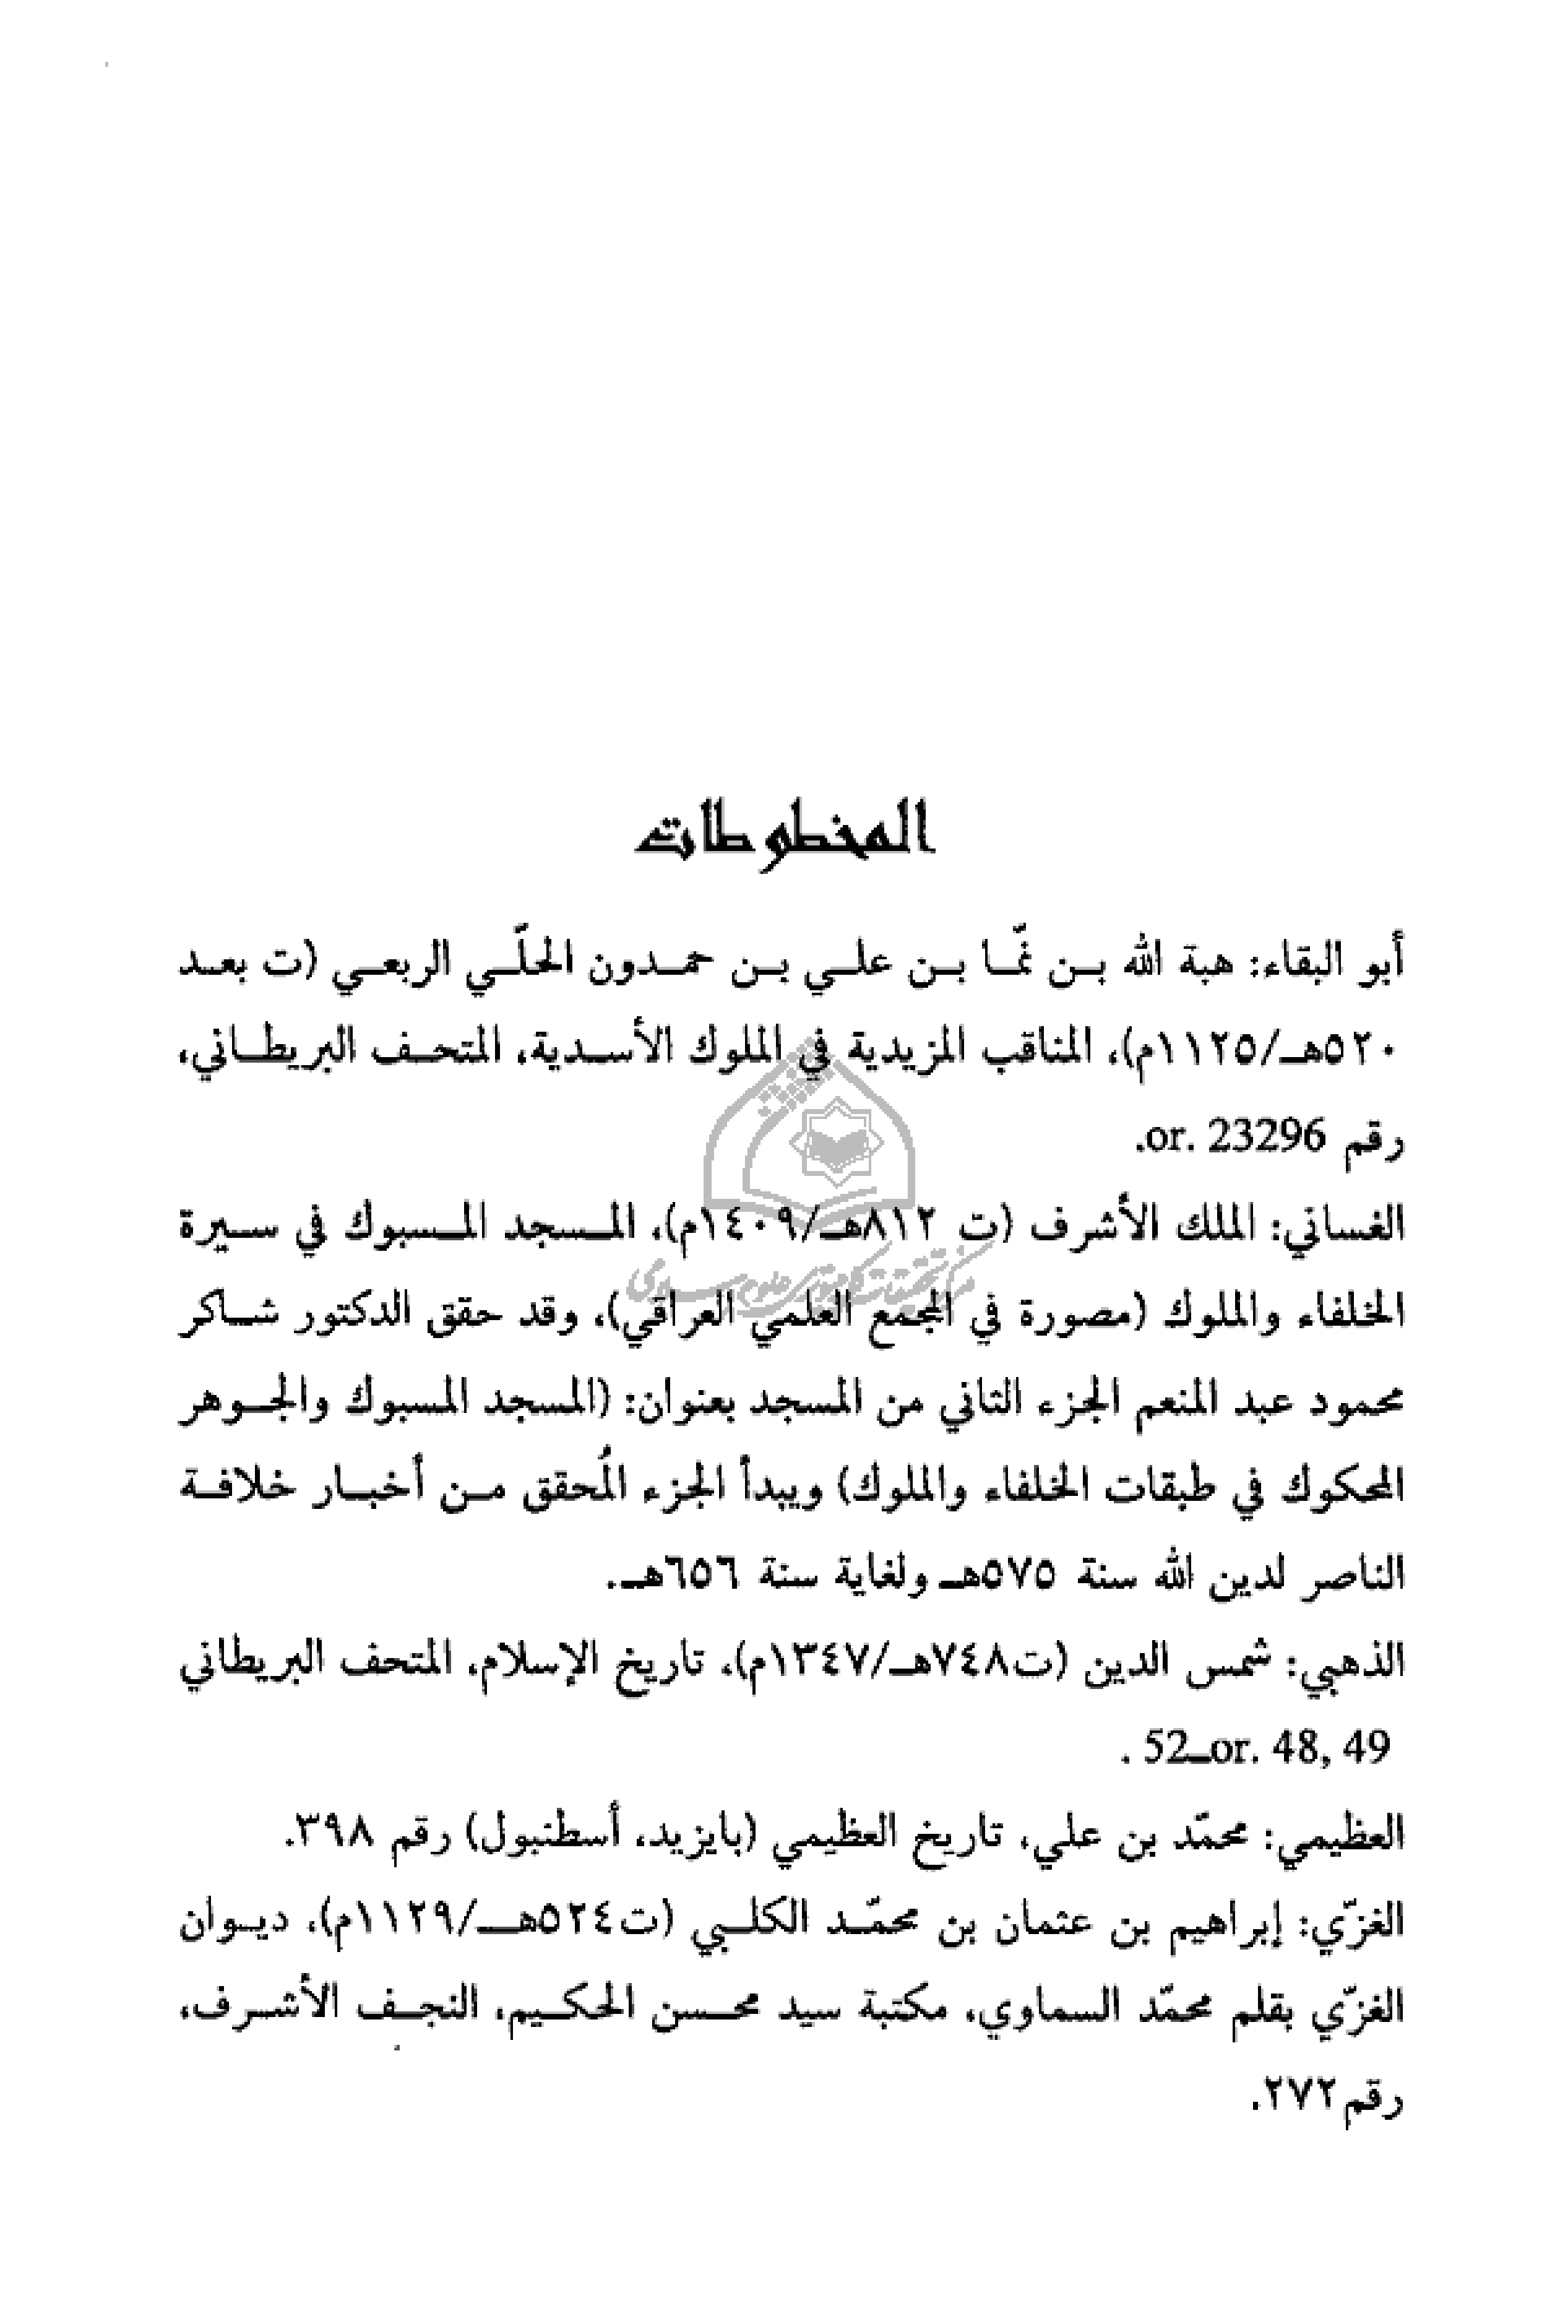 المخطوطات
أبو البقاء: هبة الله بن نمّا بن علي بن حمدون الحلّي الربعي (ت بعد
٥٢٠هـ/١١٢٥م)، المناقب المزيدية في الملوك الأسدية، المتحف البريطاني،
رقم or. 23296.
الغساني: الملك الأشرف (ت ٨١٢هـ/١٤٠٩م)، المسجد المسبوك في سيرة
الخلفاء والملوك (مصورة في المجمع العلمي العراقي)، وقد حقق الدكتور شاكر
محمود عبد المنعم الجزء الثاني من المسجد بعنوان: (المسجد المسبوك والجوهر
المحكوك في طبقات الخلفاء والملوك) ويبدأ الجزء المُحقق من أخبار خلافة
الناصر لدين الله سنة ٥٧٥هـ ولغاية سنة ٦٥٦هـ.
الذهبي: شمس الدين (ت٧٤٨هـ/١٣٤٧م)، تاريخ الإسلام، المتحف البريطاني
or. 48, 49ـ52 .
العظيمي: محمّد بن علي، تاريخ العظيمي (بايزيد، أسطنبول) رقم ٣٩٨.
الغزّي: إبراهيم بن عثمان بن محمّد الكلبي (ت٥٢٤هـ/١١٢٩م)، ديوان
الغزّي بقلم محمّد السماوي، مكتبة سيد محسن الحكيم، النجف الأشرف،
رقم٢٧٢.